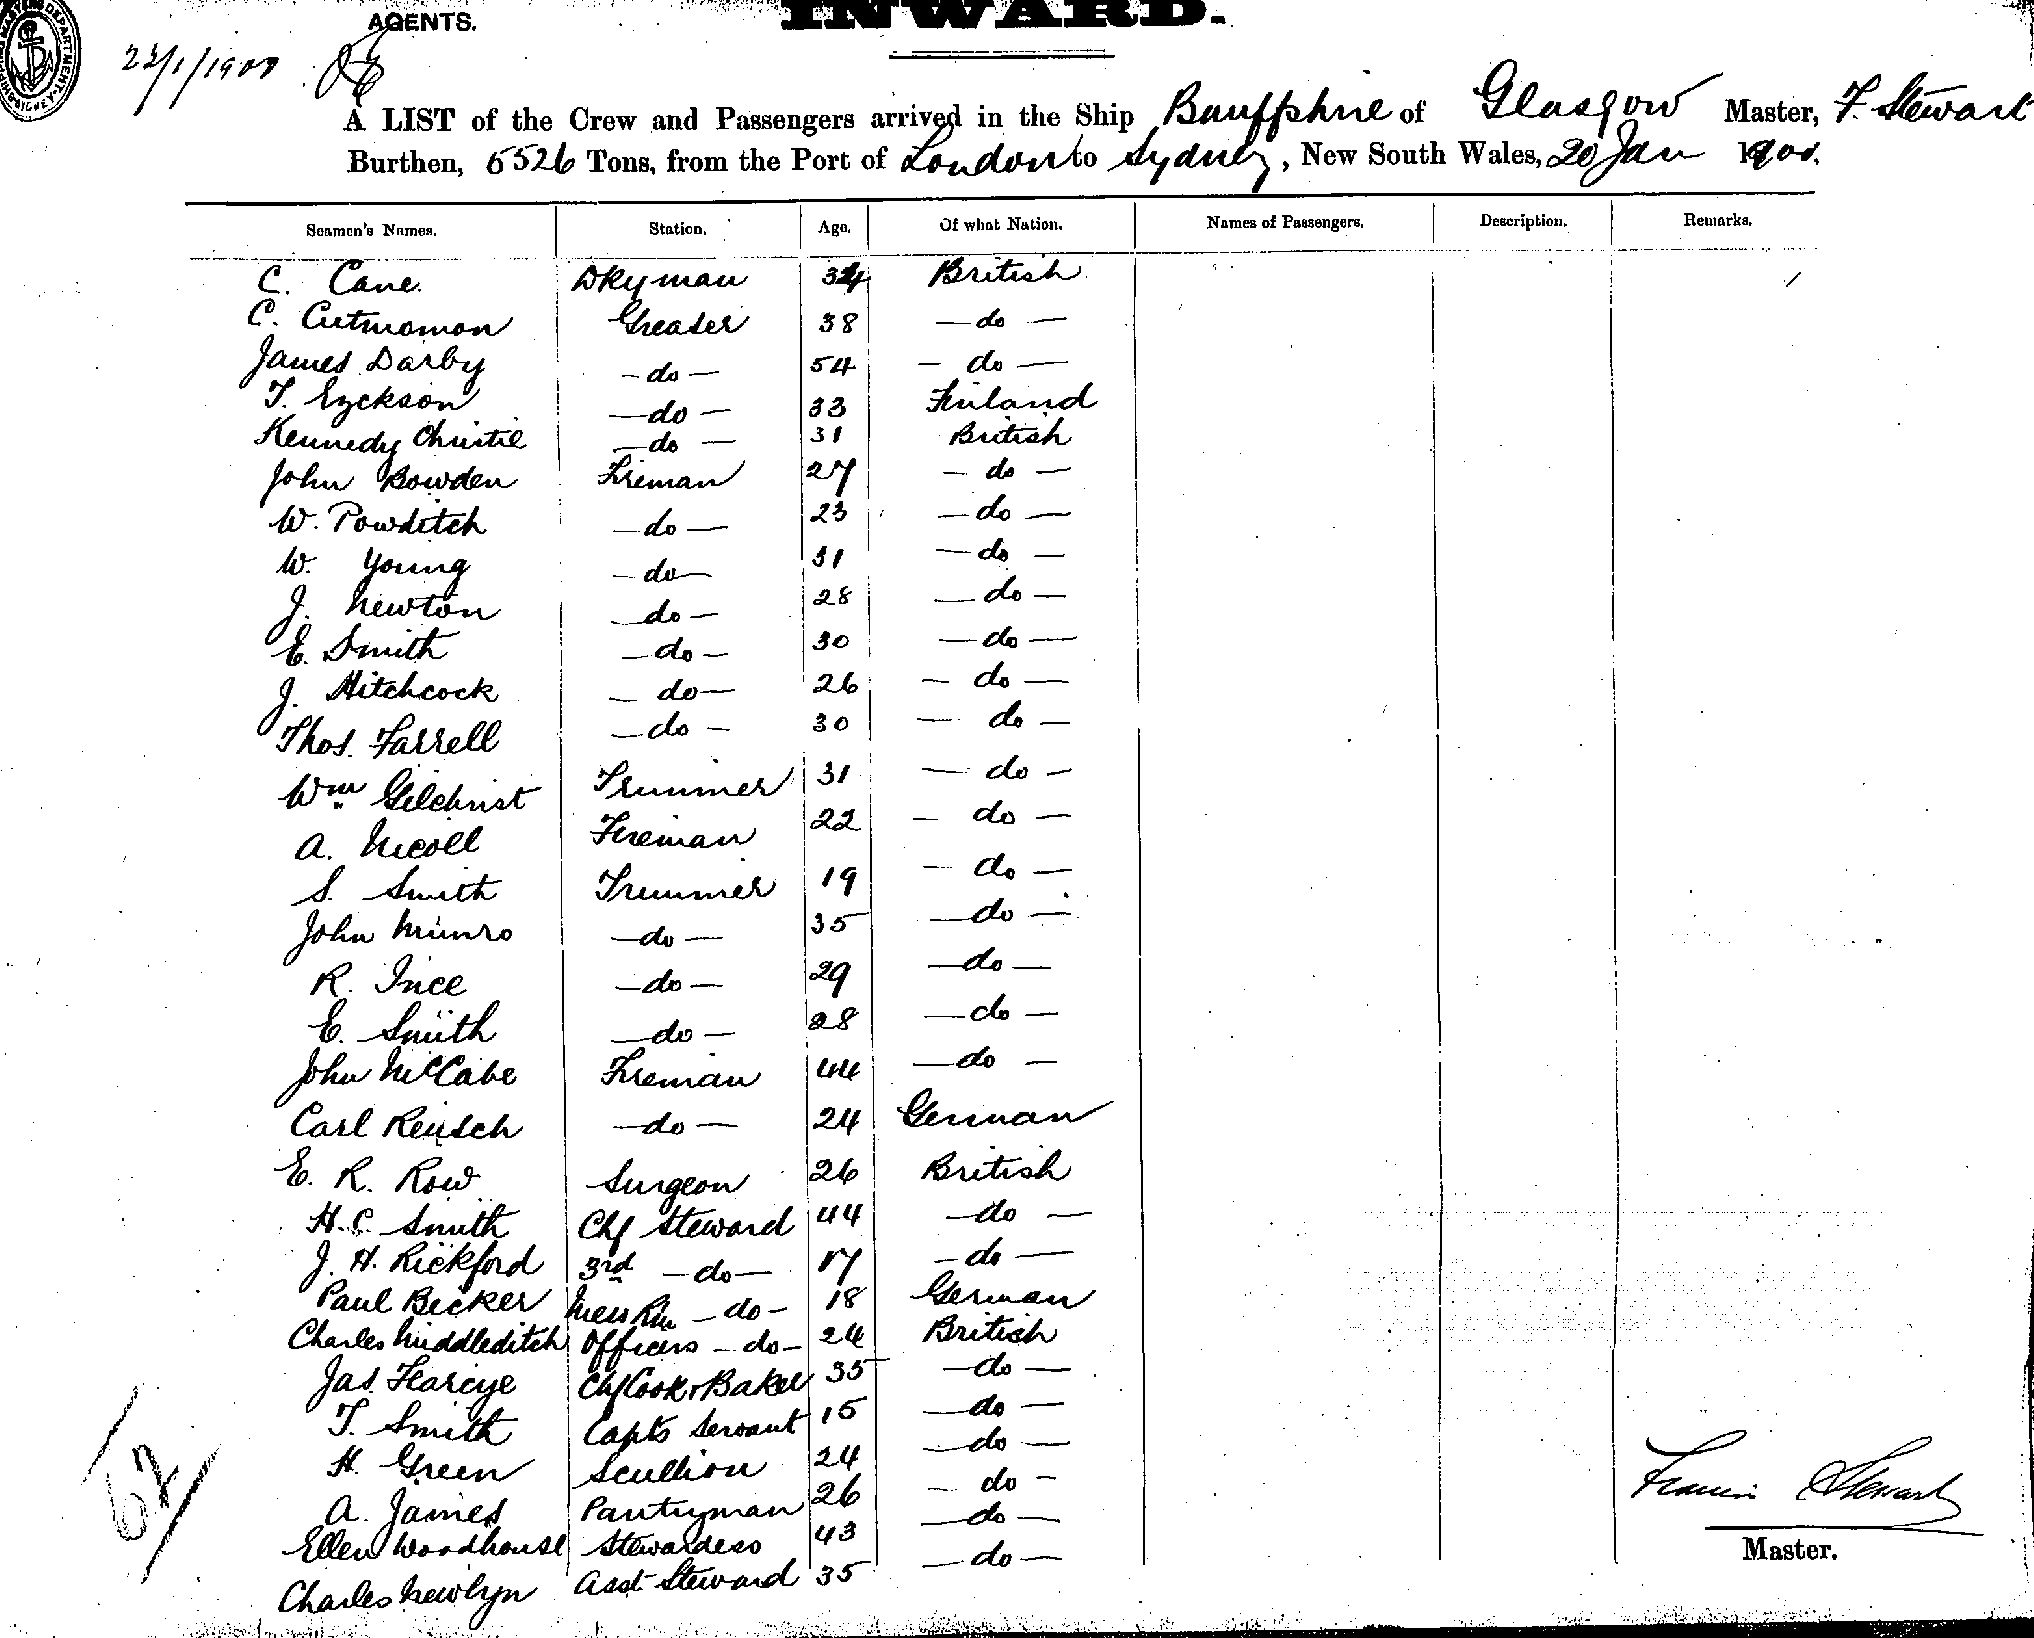 INWARD.
AGENTS.
22/1/1900
A LIST of the Crew and Passengers arrived in the Ship Banffshire of Glasgow Master, F. Stewart
Burthen, 5526 Tons, from the Port of London to Sydney, New South Wales, 20 Jan 1900.
Seamen's Names. Station. Age. Of what Nation. Names of Passengers. Description. Remarks.
C. Cane Dkyman 34 British
C. Cutmoman Greaser 38 — do —
James Darby — do — 54 — do —
T. Ezckson — do — 33 Finland
Kennedy Christie — do — 31 British
John Bowden Fireman 27 — do —
W. Powditch — do — 23 — do —
W. Young — do — 31 — do —
J. Newton — do — 28 — do —
E. Smith — do — 30 — do —
J. Hitchcock — do — 26 — do —
Thos. Farrell — do — 30 — do —
Wm Gilchrist Trimmer 31 — do —
A. Nicoll Fireman 22 — do —
S. Smith Trimmer 19 — do —
John Munro — do — 35 — do —
R. Ince — do — 29 — do —
E. Smith — do — 28 — do —
John McCabe Fireman 44 — do —
Carl Reusch — do — 24 German
E. R. Row Surgeon 26 British
H. C. Smith Chf Steward 44 — do —
J. H. Rickford 3rd — do — 17 — do —
Paul Becker Mess Rm — do — 18 German
Charles Middleditch Officers — do — 24 British
Jas. Fearcye Chf Cook & Baker 35 — do —
T. Smith Capts Servant 15 — do —
H. Green Scullion 24 — do —
A. James Pantryman 26 — do —
Ellen Woodhouse Stewardess 43 — do —
Charles Newlyn Asst Steward 35 — do —
62
Francis Stewart
Master.